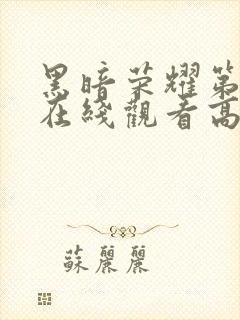 黑暗荣耀第
在线觀看高
蘇麗麗